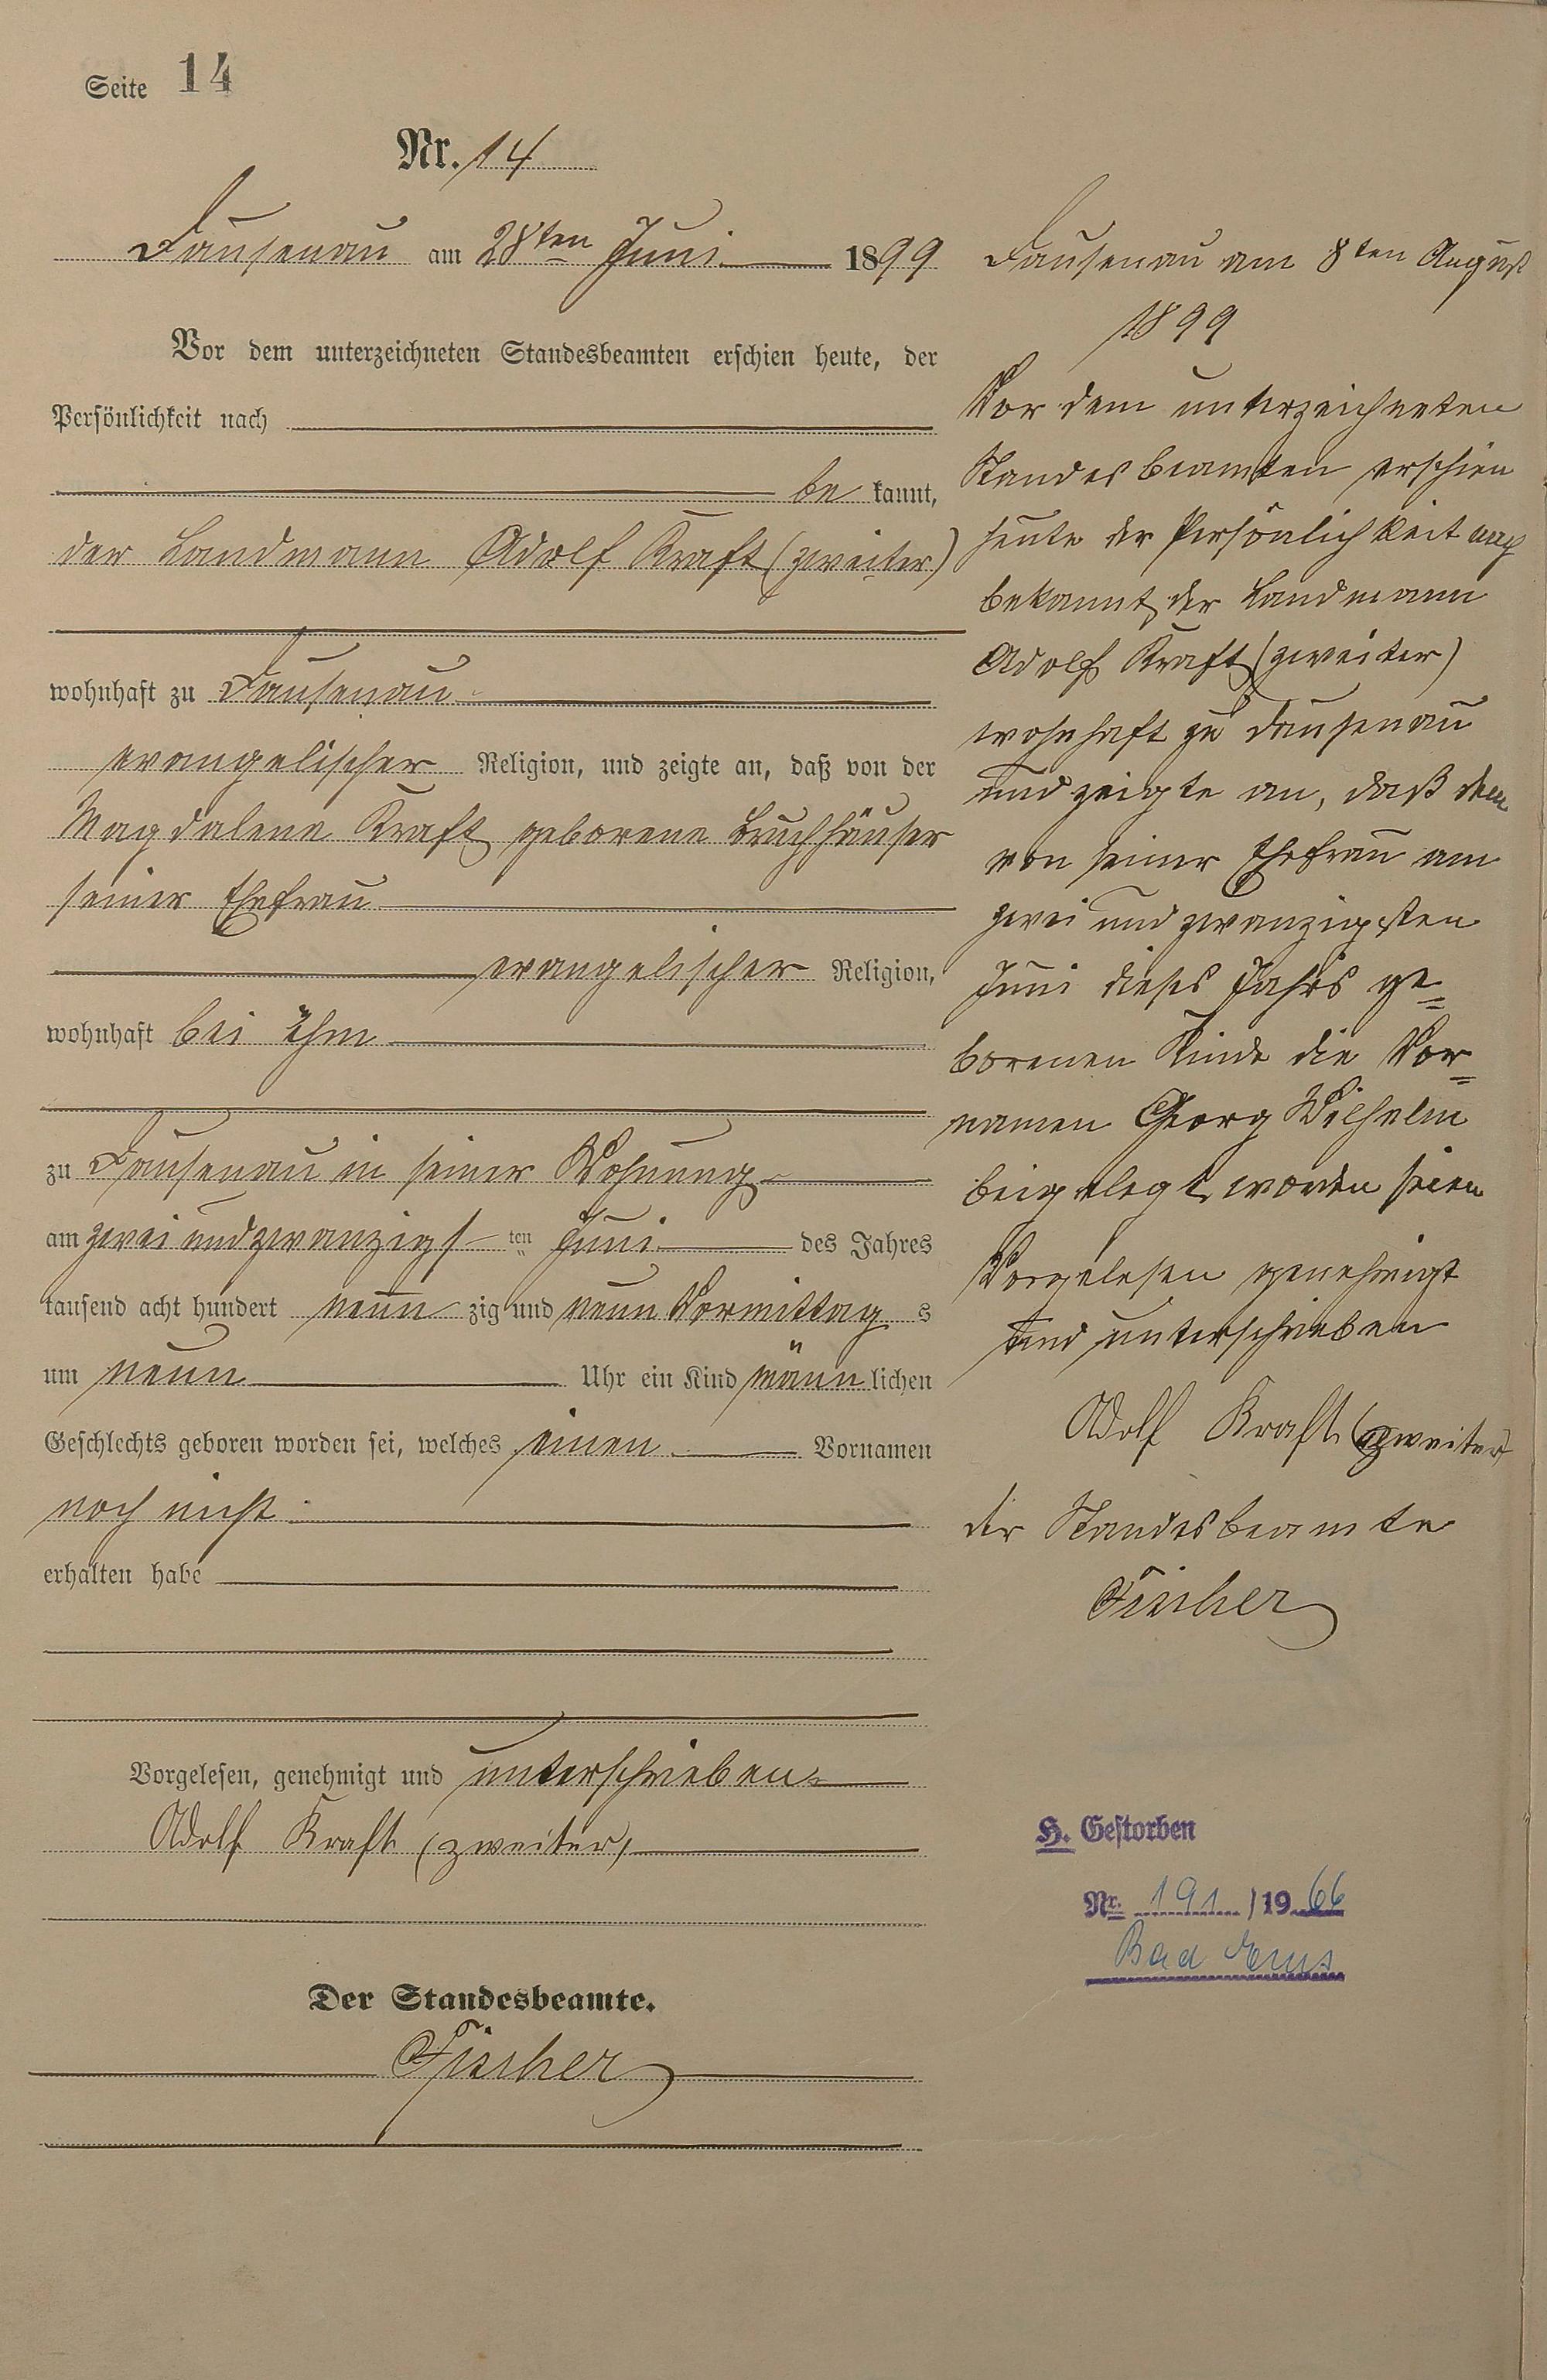 Seite 14
Nr. 14
Dausenau am 28ten Juni 1899
Vor dem unterzeichneten Standesbeamten erschien heute, der
Persönlichkeit nach
be kannt,
der Landmann Adolf Kraft (zweiter)
wohnhaft zu Dausenau
evangelischer Religion, und zeigte an, daß von der
Magdalene Kraft geborene Bruchhäuser
seiner Ehefrau
evangelischer Religion,
wohnhaft bei ihm
zu Dausenau in seiner Wohnung
am zwei und zwanzigs ten Juni des Jahres
tausend acht hundert neun zig und neun Vormittag s
um neun Uhr ein Kind männ lichen
Geschlechts geboren worden sei, welches einen Vornamen
noch nicht
erhalten habe
Vorgelesen, genehmigt und unterschrieben
Adolf Kraft (zweiter)
Der Standesbeamte.
Fischer
Dausenau am 8ten August
1899
Vor dem unterzeichneten
Standesbeamten erschien
heute der Persönlichkeit nach
bekannt, der Landmann
Adolf Kraft (zweiter)
wohnhaft zu Dausenau
und zeigte an, daß dem
von seiner Ehefrau am
zwei und zwanzigsten
Juni dieses Jahrs ge=
borenen Kinde die Vor=
namen Georg Wilhelm
beigelegt worden seien
Vorgelesen genehmigt
und unterschrieben
Adolf Kraft (zweiter)
der Standesbeamte
Fischer
H. Gestorben
Nr. 191 / 19 66
Bad Ems